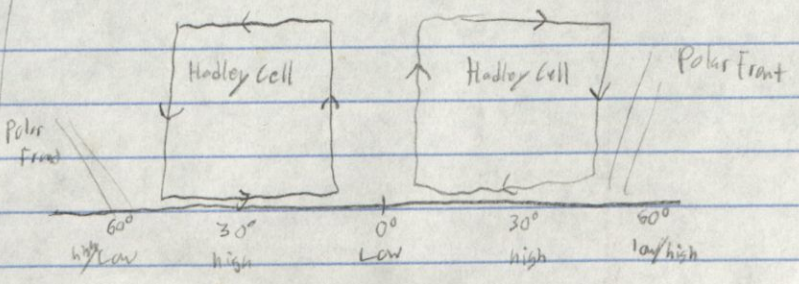 Hadley Cell Hadley Cell Polar Front
Polar
Front
60° 30° 0° 30° 60°
high/Low high Low high low/high